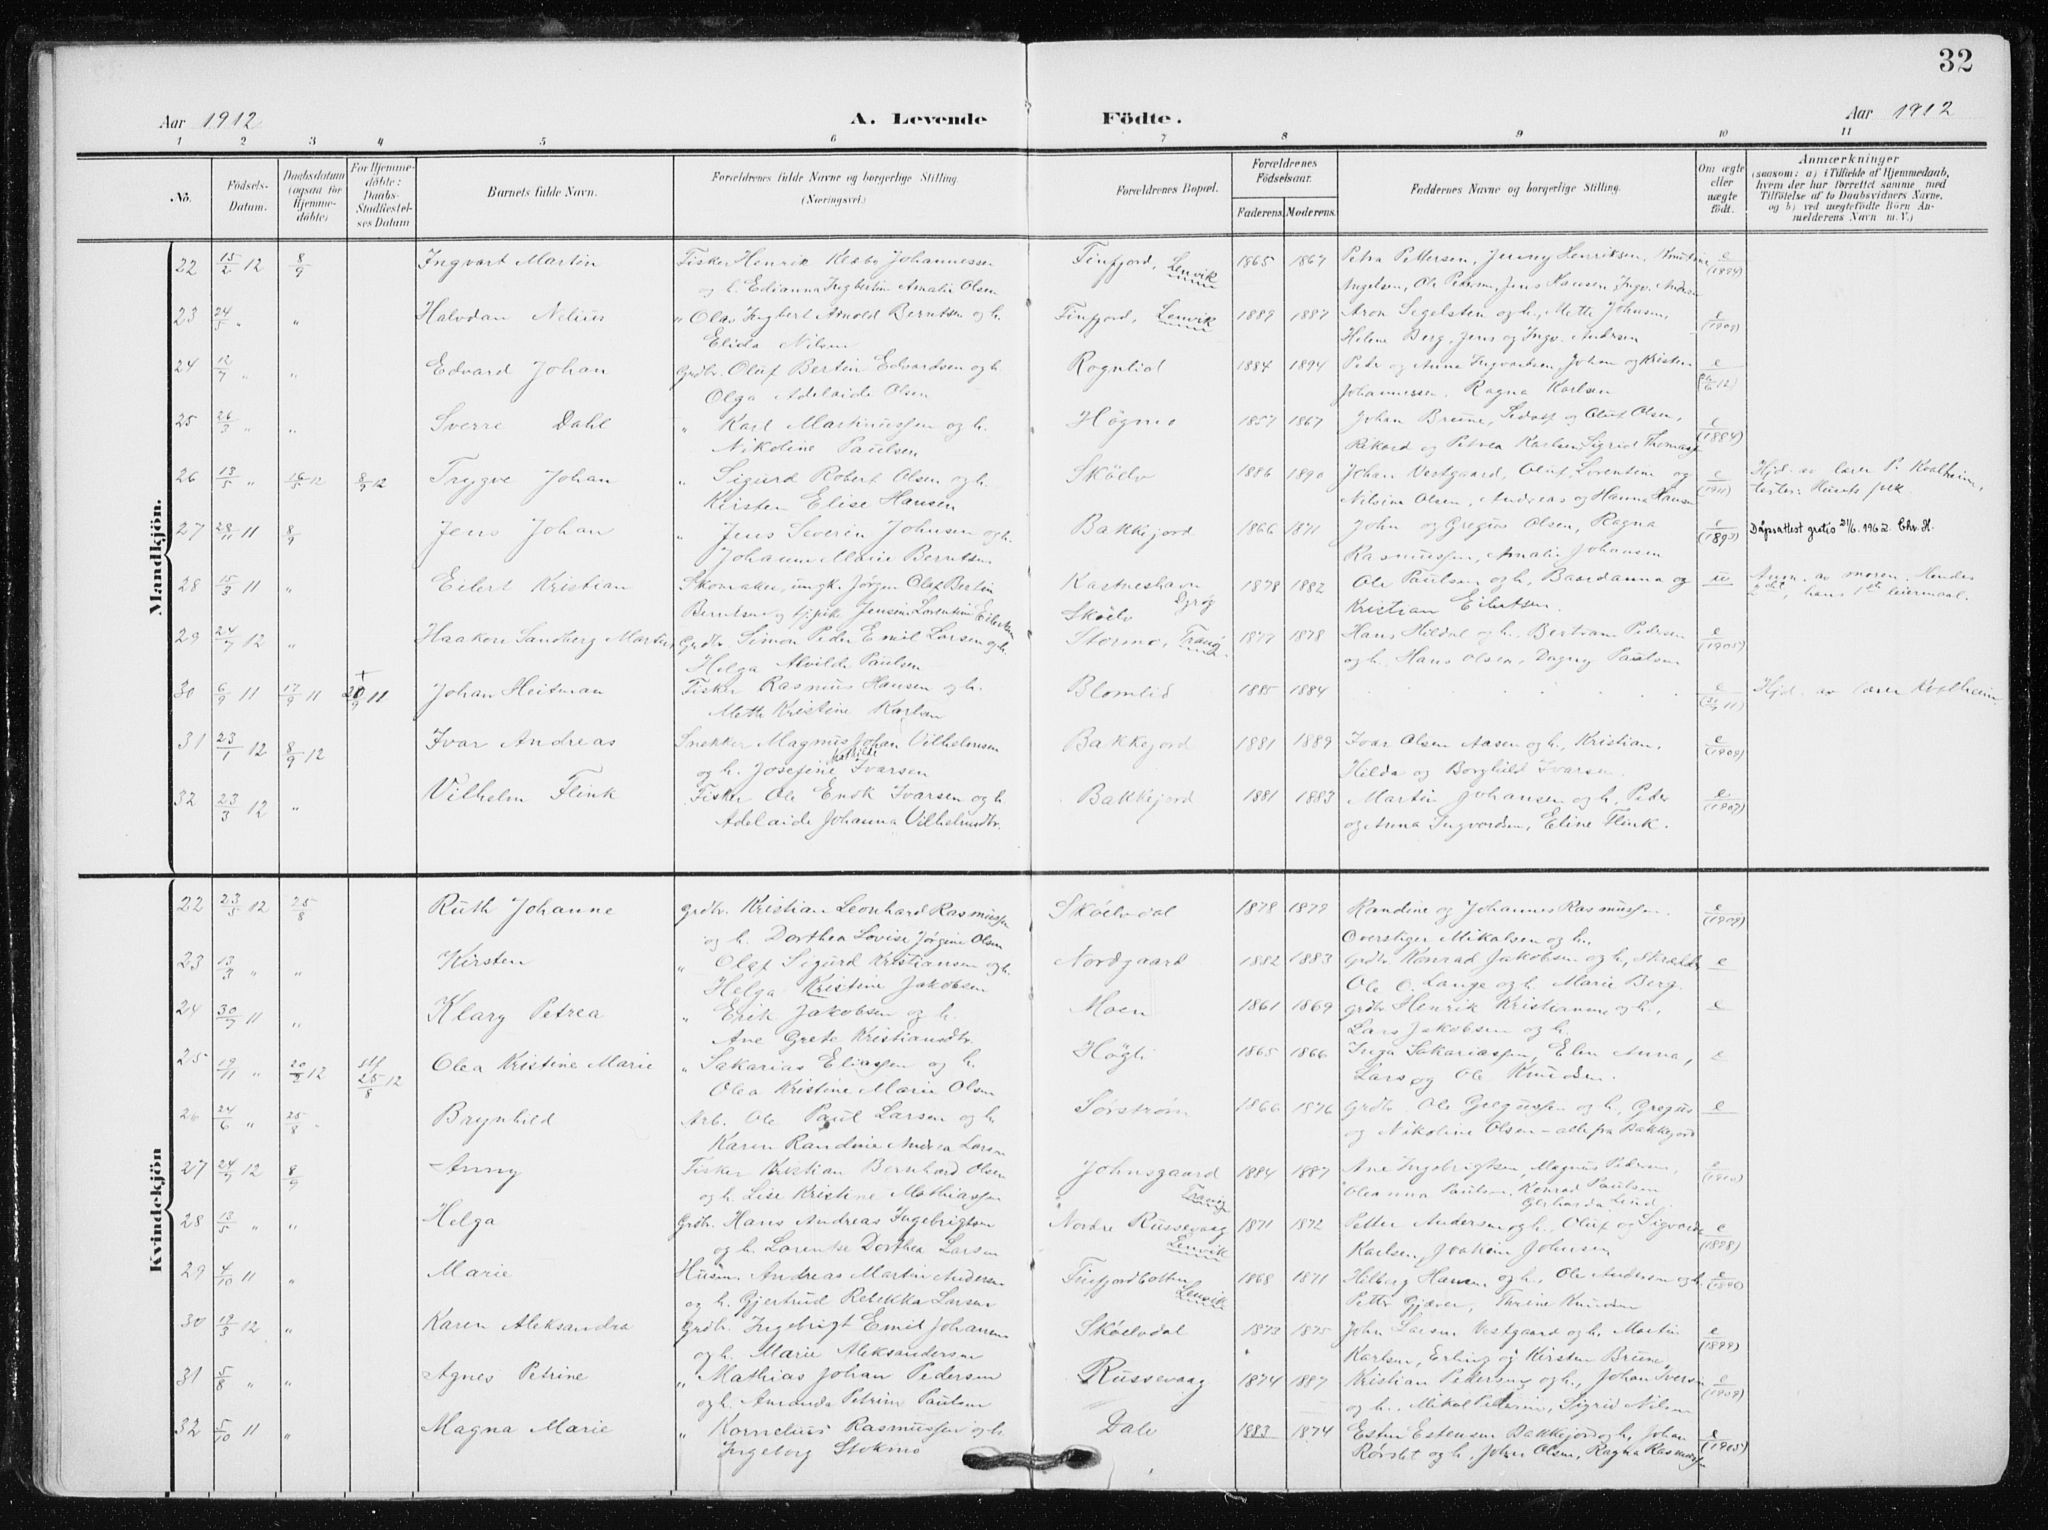 32
Aar 1912
A. Levende Födte.
Aar 1912
1 2 3 4 5 6 7 8 9 10 11
No.
Födsels-Datum.
Daabsdatum (ogsaa for Hjemme-döbte)
For Hjemme-döbte: Daabs-Stadfæstel-ses Datum
Barnets fulde Navn.
Forældrenes fulde Navne og borgerlige Stilling. (Næringsvei.)
Forældrenes Bopæl.
Forældrenes Födselsaar.
Faderens. Moderens.
Faddernes Navne og borgerlige Stilling.
Om ægte eller uægte födt.
Anmærkninger
(saasom: a) i Tilfælde af Hjemmedaab, hvem der har forrettet samme, med Tilföielse af to Daabsvidners Navne, og b) ved uægtefödte Börn Anmelderens Navn m. V.)
Mandkjön.
22 15/2 12 8/9 Ingvart Martin Fisker Henrik Johannessen Finfjord, Lenvik 1865 1867 Petra Pettersen, Jenny Henriksen, e
og h. Edianna Ingbertine Amalie Olsen Angelsen, Ole Pedersen, Jens Hansen, Ingv. Andersen (1894)
23 24/5 " " Halvdan Nelius " Olav Ingbert Arnold Berntsen og h. Finfjord, Lenvik 1889 1887 Aron Segelsten og h., Mette Johnsen, e
Elida Nilsen Helene Berg, Jens og Ingv. Andersen (1909)
24 12/7 " " Edvard Johan Grdbr. Oluf Bertin Edvardsen og h. Rognlid 1884 1894 Peder og Anna Ingvardsen, Johan og Kristen e
Olga Adelaide Olsen Johannessen, Ragna Karlsen
25 26/3 " " Sverre Dahl " Karl Martinussen og h. Högmo 1857 1867 Johan Brune, og Oluf Olsen, e
Nikoline Paulsen Rikard og Petrea Karlsen, Sigrid Thomass (1884)
26 13/5 " 16/5 12 8/9 12 Trygve Johan " Sigurd Robert Olsen og h. Sköelv 1886 1890 Johan Vestgaard, Oluf, Lorentine og e Hjd. av lærer P. Kvalheim,
Kirsten Elise Hansen Nilsine Olsen, Andreas og Hanna Hansen (1911) tester: Husets folk.
27 28/11 11 8/9 Jens Johan " Jens Severin Johnsen og h. Bakkejord 1866 1871 John og Gregus Olsen, Ragna e Dåpsattest gratis 21/6. 1962. Chr. H.
Johanna Marie Berntsen Rasmussen, Amalie Johansen (1893)
28 15/3 11 " Eilert Kristian Skomaker, ungk. Jörgen Olaf Bertin Kastneshavn Dyröy 1878 1882 Ole Paulsen og h., Baardanna og Anm. av moren. Hendes
Berntsen og pike Jensine Lorentine Eilertsen Sköelv Kristian Eilertsen. 2det, hans 1ste leiermaal.
29 24/7 12 " Haakon Sandberg Martin Grdbr. Simon Peder Emil Larsen og h. Stormo, Tranöy 1877 1878 Hans Hildal og h., Bertram Pedersen e
Helga Alvilde Paulsen og h., Hans Olsen, Dagny Paulsen (1905)
30 6/9 11 17/9 11 + 20/9 11 Johan Heitman Fisker Rasmus Hansen og h. Blomlid 1885 1884 e Hjd. av lærer Kvalheim
Mette Kristine Karlsen
31 23/1 12 8/9 12 Ivar Andreas Snekker Magnus Johan Vilhelmsen Bakkejord 1881 1889 Ivar Olsen Aasen og h., Kristian, e
og h. Josefine Ivarsen Hilda og Borghild Ivarsen. (1909)
32 23/3 12 " Vilhelm Flink Fisker Ole Enok Ivarsen og h. Bakkejord 1881 1883 Martin Johansen og h., Peder e
Adelaide Johanna Vilhelmsdtr. og Anna Ingvardsen, Eline Flink. (1907)
Kvindekjön
22 23/5 12 25/8 Ruth Johanne Grdbr. Kristian Leonhard Rasmussen Sköelvdal 1878 1879 Randine og Johannes Rasmussen. e
og h. Dorthea Lovise Jörgine Olsen Overstiger Mikalsen og h. (1909)
23 13/3 " " Kirsten " Olaf Sigurd Kristiansen og h. Nordgaard 1882 1883 Grdbr. Konrad Jakobsen og h., Skrædder e
Helga Kristine Jakobsen Ole O. Lange og h. Marie Berg.
24 30/7 11 " Klary Petrea " Erik Jakobsen og h. Moen 1861 1869 Grdbr Henrik Kristiansen og h., e
Ane Grete Kristiansdtr. Lars Jakobsen og h.
25 19/11 " 20/2 12 25/8 12 Olea Kristine Marie " Sakarias Eliassen og h. Högli 1865 1866 Inga Sakariassen, Elen Anna, e
Olea Kristine Marie Olsen Lars og Ole Knudsen.
26 24/6 " 25/8 " Brynhild Arb. Ole Paul Larsen og h. Sörström 1866 1876 Grdbr. Ole Gregussen og h., Gregus e
Karen Randine Andrea Larsen og Nikoline Olsen – alle fra Bakkejord
27 24/7 12 8/9 Anny Fisker Kristian Bernhard Olsen Johnsgaard Tranöy 1884 1887 Ane Ingebrigtsen, Magnus Pedersen, e
og h. Lise Kristine Mathiassen Oleanna Paulsen, Konrad Paulsen Gerharda Lund. (1910)
28 13/5 " " Helga Grdbr. Hans Andreas Ingebrigtsen Nordre Russevaag Lenvik 1871 1872 Petter Andersen og h., Oluf og Sigvarda e
og h. Lorentse Dorthea Larsen Karlsen, Joakim Johnsen (1898)
29 4/10 11 " Marie Husm. Andreas Martin Andersen Finfjordbotten Lenvik 1868 1871 Hilberg Hansen og h., Ole Andersen og h. e
og h. Gjertrud Rebekka Larsen Petter Gjæver, Thrine Knudsen
30 19/3 12 " Karen Aleksandra Grdbr. Ingebrigt Emil Johansen Sköelvdal 1873 1875 John Larsen Vestgaard og h., Martin e
og h. Marie Aleksandersen Karlsen, Erling og Kirsten Brune (1899)
31 5/8 " " Agnes Petrine " Mathias Johan Pedersen Russevaag 1874 1887 Kristian Pedersen og h., Johan Iversen e
og h. Amanda Petrine Paulsen og h., Mikal Pedersen, Sigrid Nilsen (1909)
32 5/10 11 " Magna Marie " Kornelius Rasmussen og h. Dale 1883 1874 Esten Estensen Bakkejord og h., Johan e
Ingeborg Stokmo Rörstet og h., John Olsen, Ragna Rasmussen (1905)